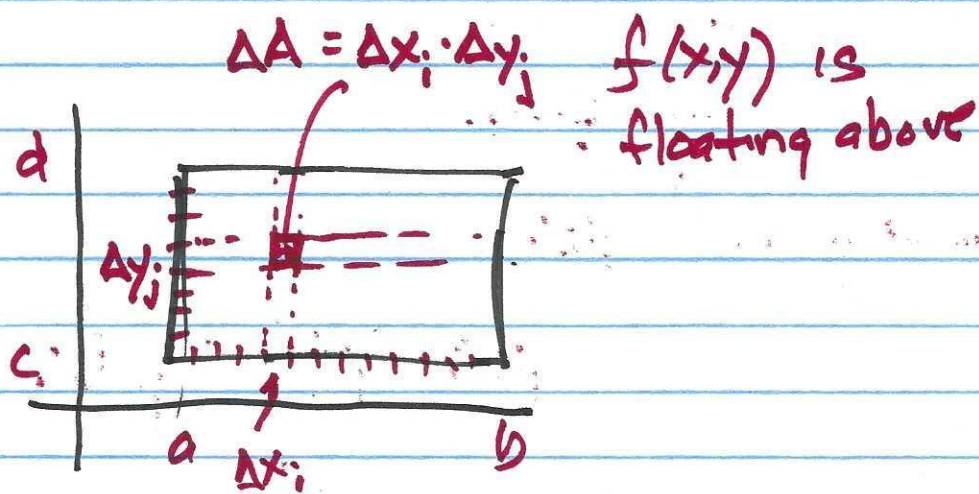 ΔA = Δxᵢ · Δyⱼ
f(x,y) is
floating above
d
Δyⱼ
c
a
Δxᵢ
b